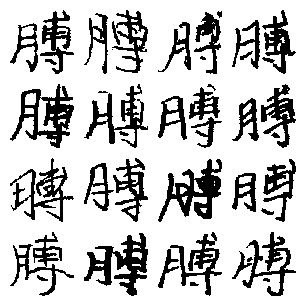 膊膊膊膊
膊膊膊膊
膊膊膊膊
膊膊膊膊